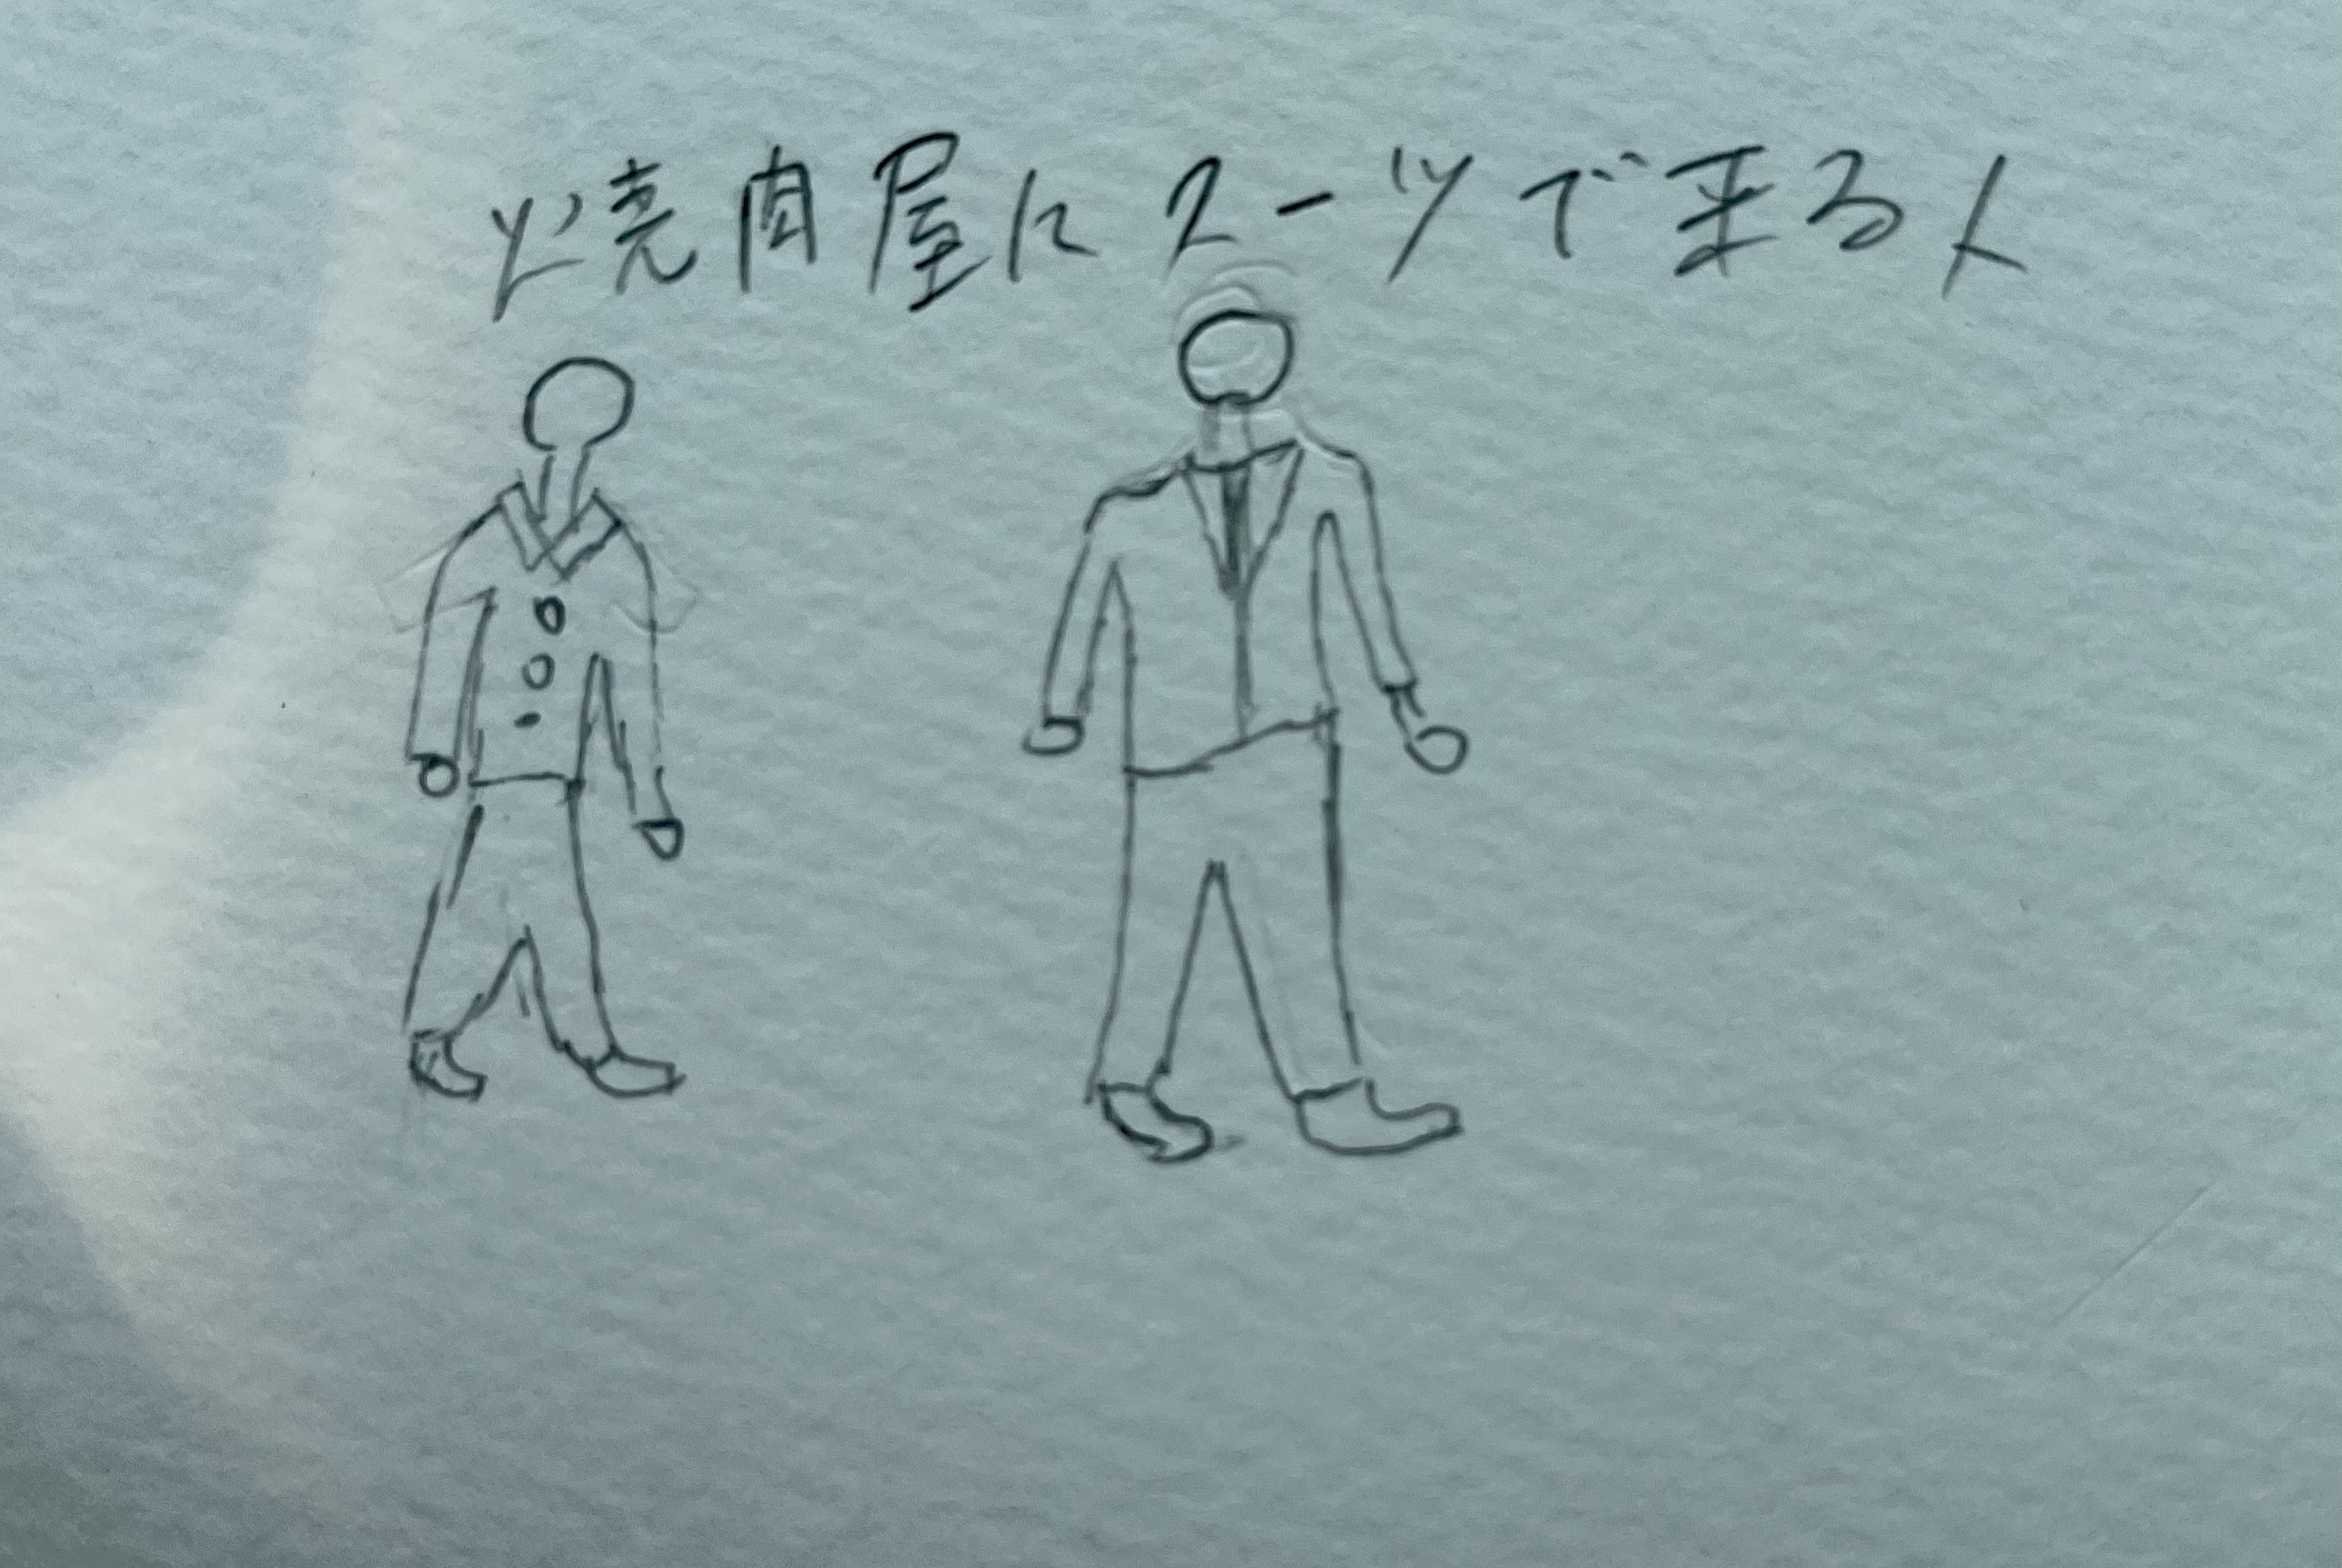 焼肉屋にスーツで来る人